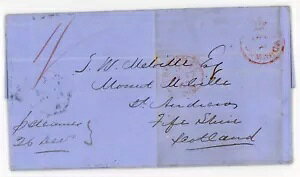 1/
J. W. Melville Esq
Mount Melville
St. Andrews
Fife Shire
Scotland
p Steamer
26 Dec